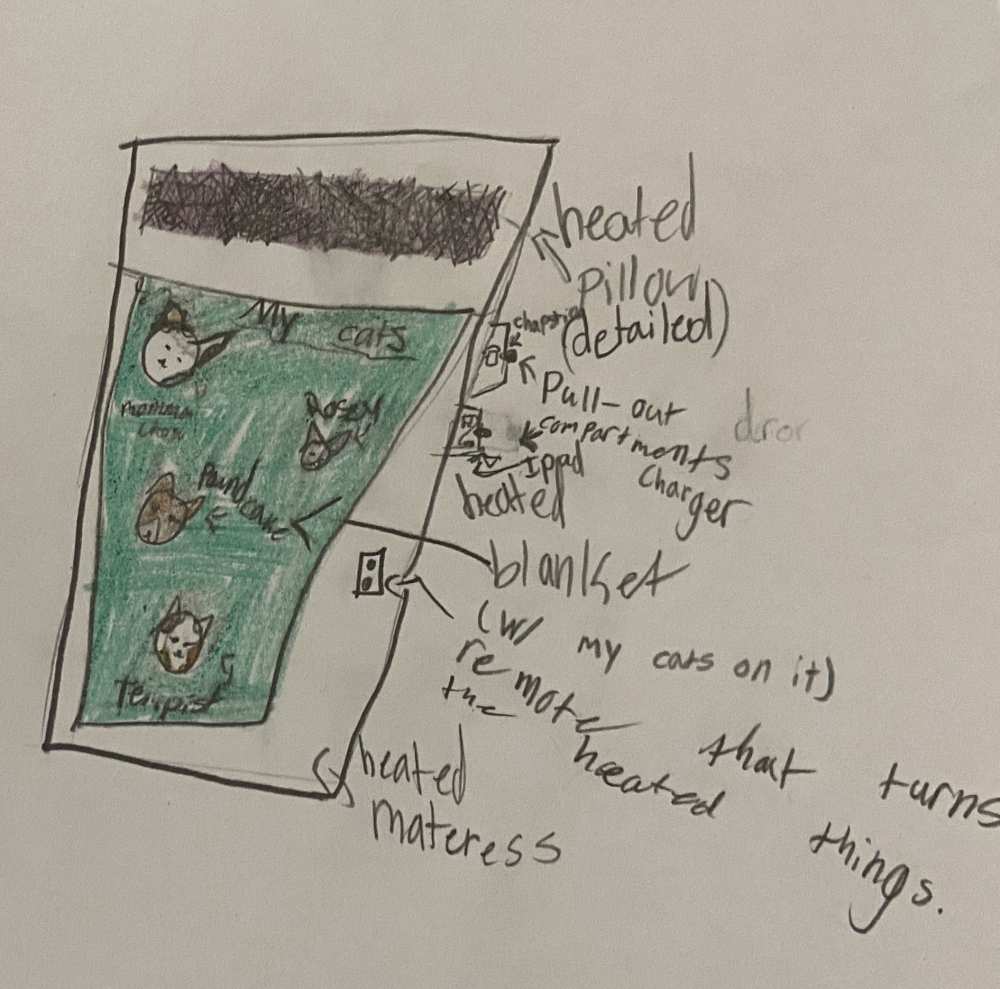 heated
pillow
(detailed)
chapstick
Pull-out
compartments
Ippad
charger
heated
blanket
(w/ my cats on it)
remote that turns
the heated things.
heated
materess
My cats
momma
Rosey
Poundcake
Tempist